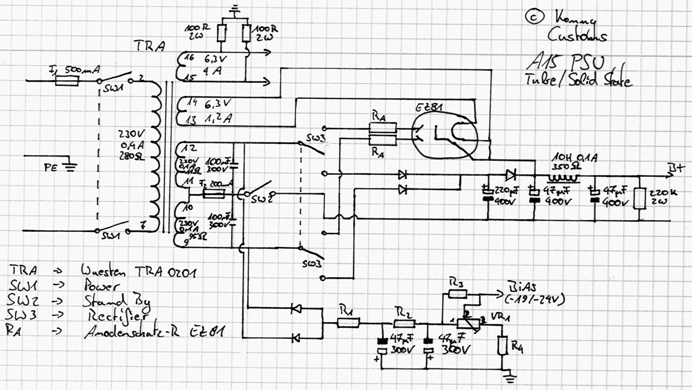 © Kenny
Customs
A15 PSU
Tube/Solid State
100R
2W
100R
2W
TRA
16 6,3V
4A
15
F1 500mA
SW1
2
14 6,3V
13 1,2A
RA
RA
EZ81
SW3
230V
0,4A
280Ω
12
230V
0,1A
11
100nF
300V
F2 200mA
SW2
10
230V
0,1A
95Ω
9
100nF
300V
PE
SW1
7
SW3
10H 0,1A
350Ω
B+
220µF
400V
47µF
400V
47µF
400V
220K
2W
TRA -> Wuesten TRA0201
SW1 -> Power
SW2 -> Stand By
SW3 -> Rectifier
RA -> Anodenschutz-R EZ81
R1
R2
R3
BiAS
(-19/-24V)
1
2
3
VR1
R4
47µF
300V
47µF
300V